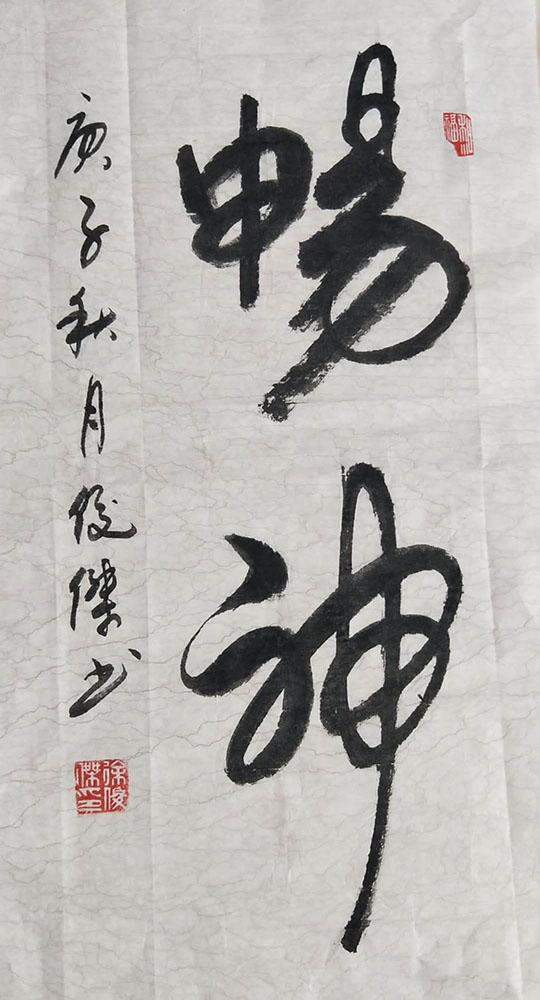 暢神
庚子秋月俊傑书
徐俊傑印